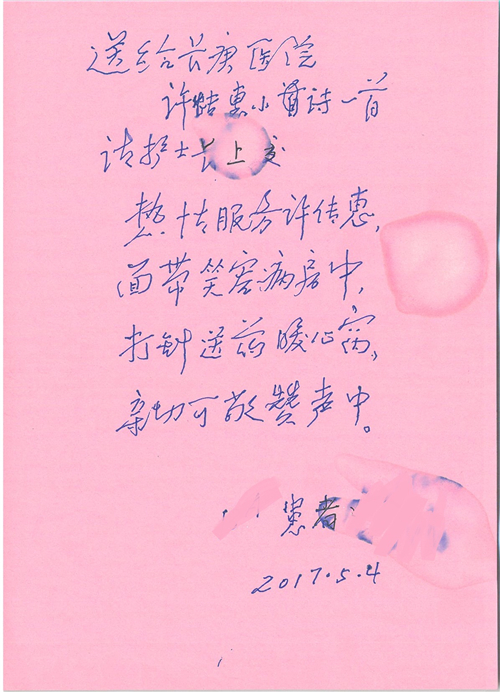 送给长庚医院
许惠小诗一首
请护士长上交
热情服务许佳惠,
面带笑容病房中,
打针送药暖心窝,
亲切可敬赞声中。
患者
2017.5.4